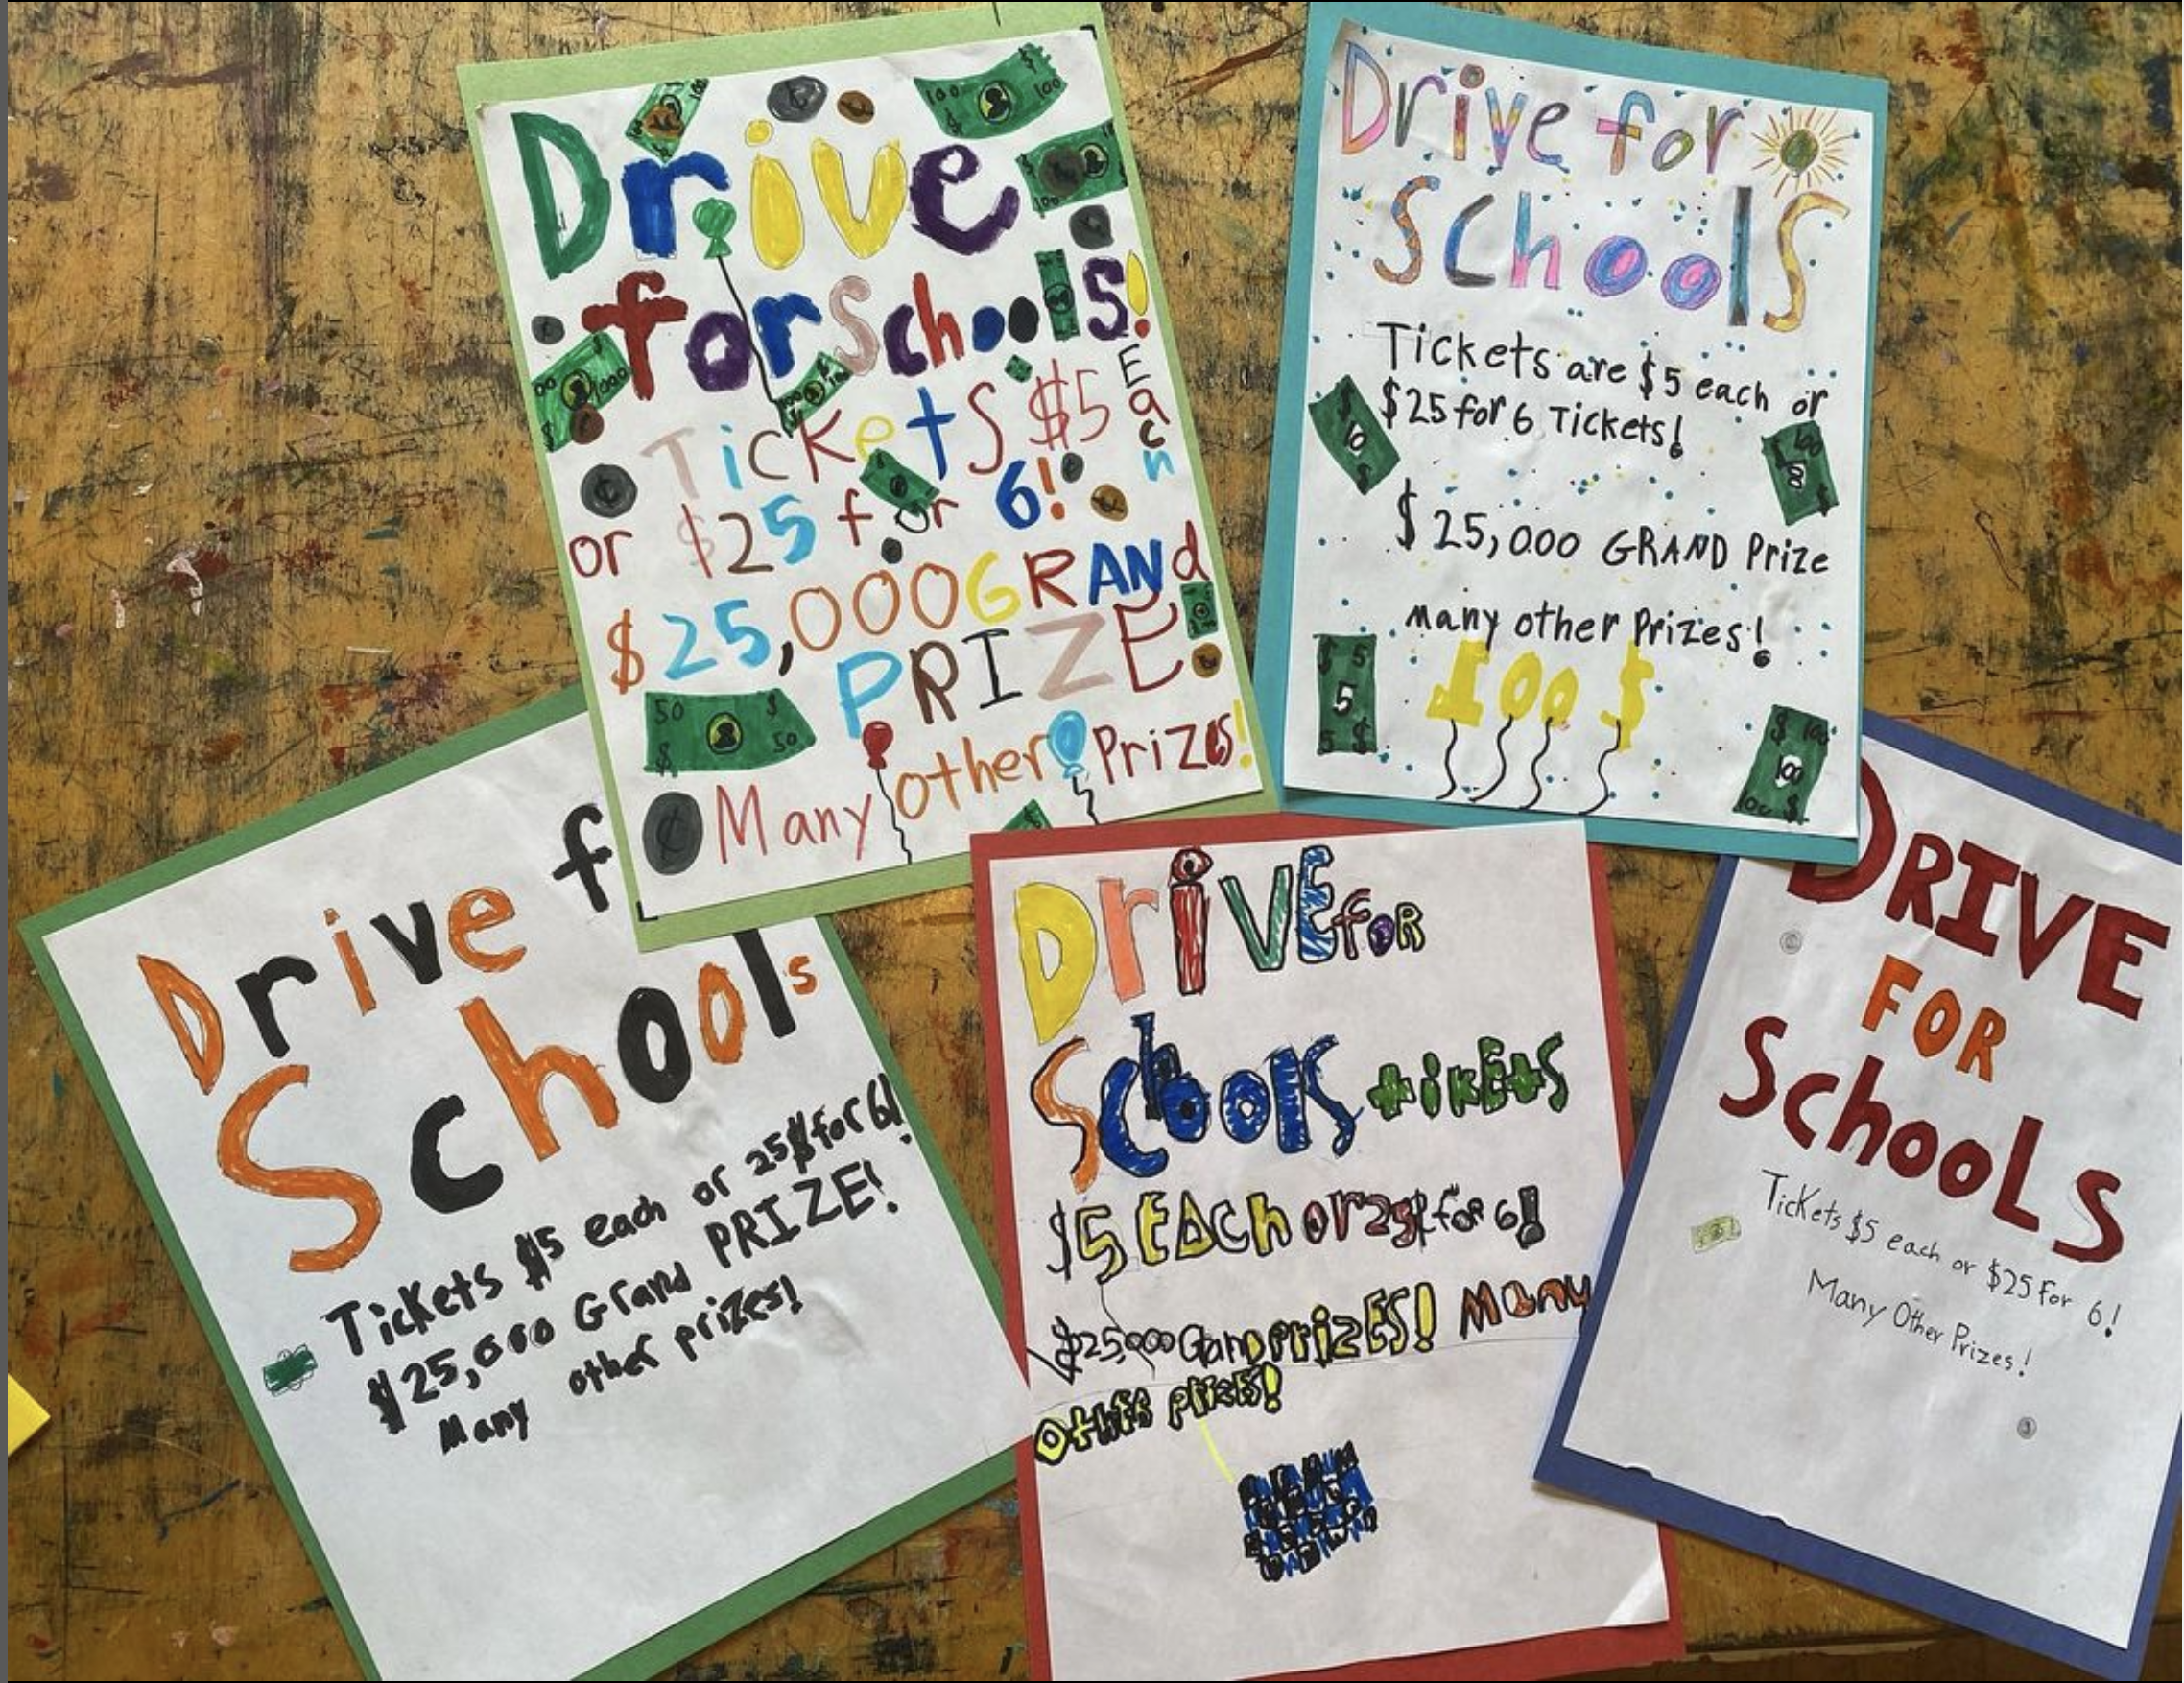 Drive
for schools!
Tickets $5 Each
or $25 for 6!
$25,000 GRANd
PRIZE!
Many other Prizes!
Drive for
Schools
Tickets are $5 each or
$25 for 6 Tickets!
$25,000 GRAND Prize
many other Prizes!
100 $
Drive f
Schools
Tickets $5 each or 25$ for 6!
$25,000 Grand PRIZE!
Many other prizes!
DriVE foR
Schools tikEts
$5 EACh or 25$ for 6!
$25000 Gand prizES! Many
Other prizES!
DRIVE
FOR
SchooLS
Tickets $5 each or $25 For 6!
Many Other Prizes!